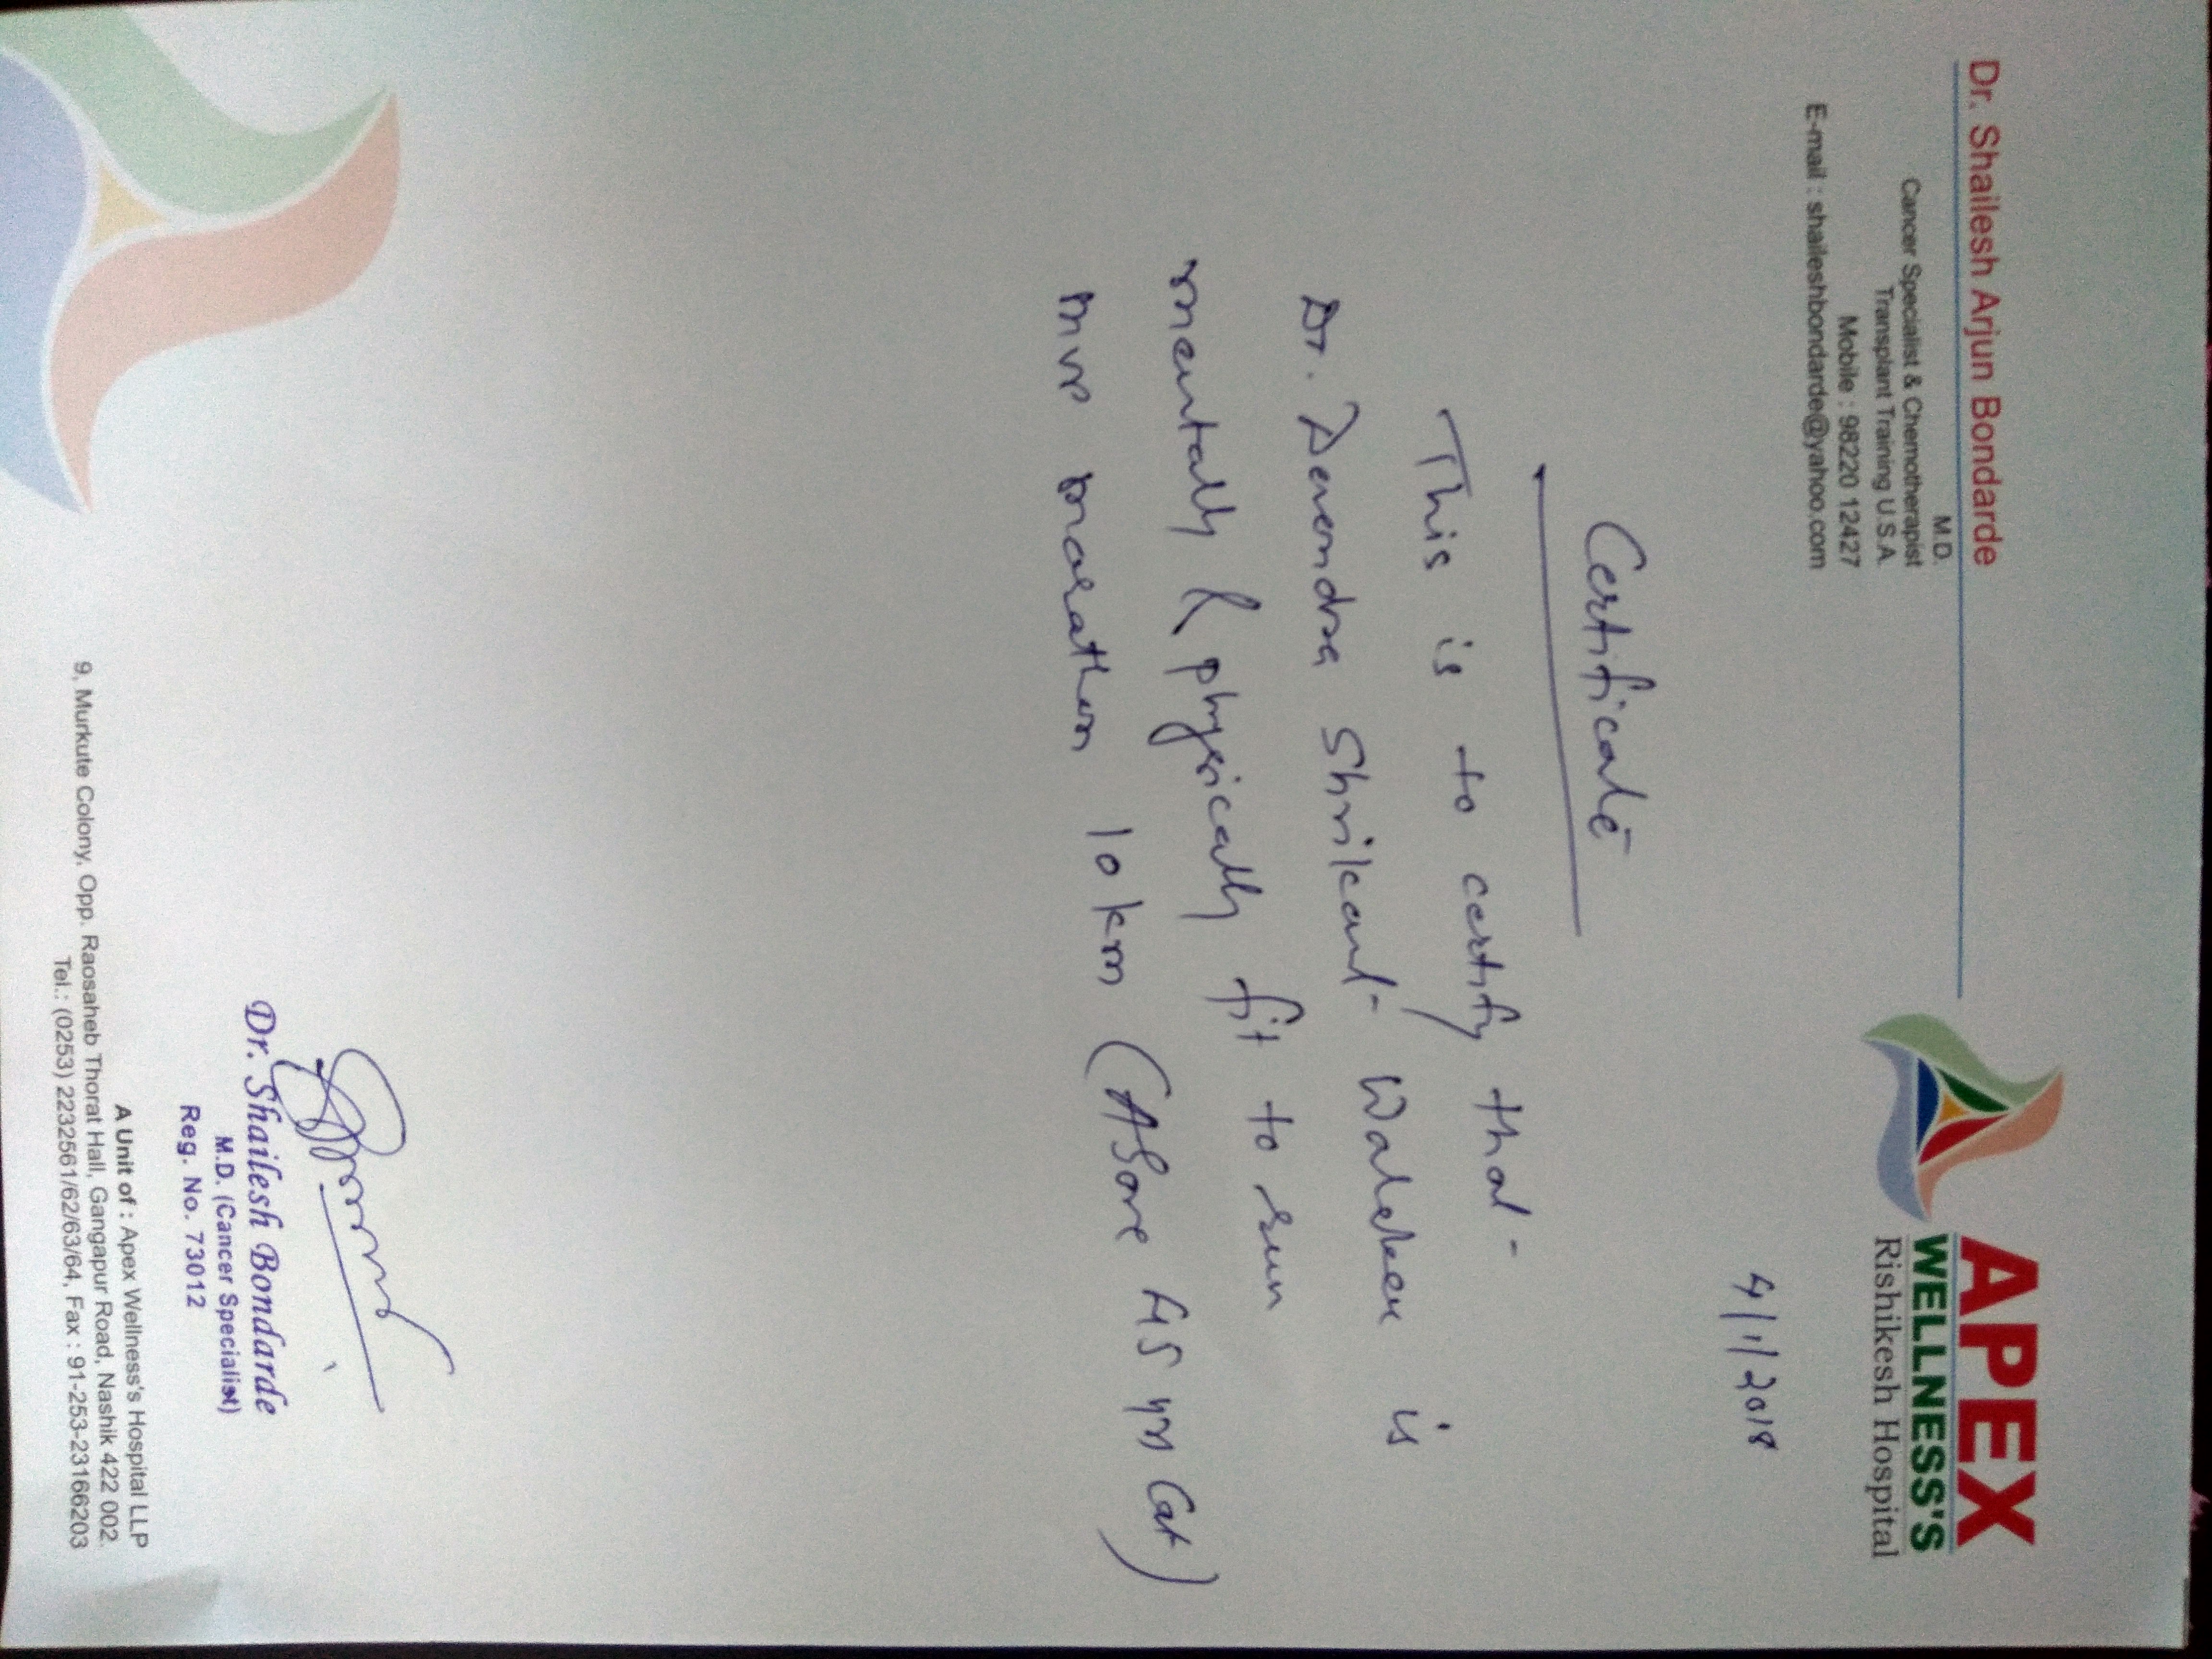 Dr. Shailesh Arjun Bondarde
M.D.
Cancer Specialist & Chemotherapist
Transplant Training U.S.A.
Mobile : 98220 12427
E-mail : shaileshbondarde@yahoo.com
APEX
WELLNESS'S
Rishikesh Hospital
4/1/2018
Certificate
This is to certify that
Dr. Devendra Shrikant is
mentally & physically fit to run
mvp marathon 10 km (Above 45 yrs Cat)
Dr. Shailesh Bondarde
M.D. (Cancer Specialist)
Reg. No. 73012
A Unit of : Apex Wellness's Hospital LLP
9, Murkute Colony, Opp. Raosaheb Thorat Hall, Gangapur Road, Nashik 422 002.
Tel.: (0253) 2232561/62/63/64, Fax : 91-253-23166203